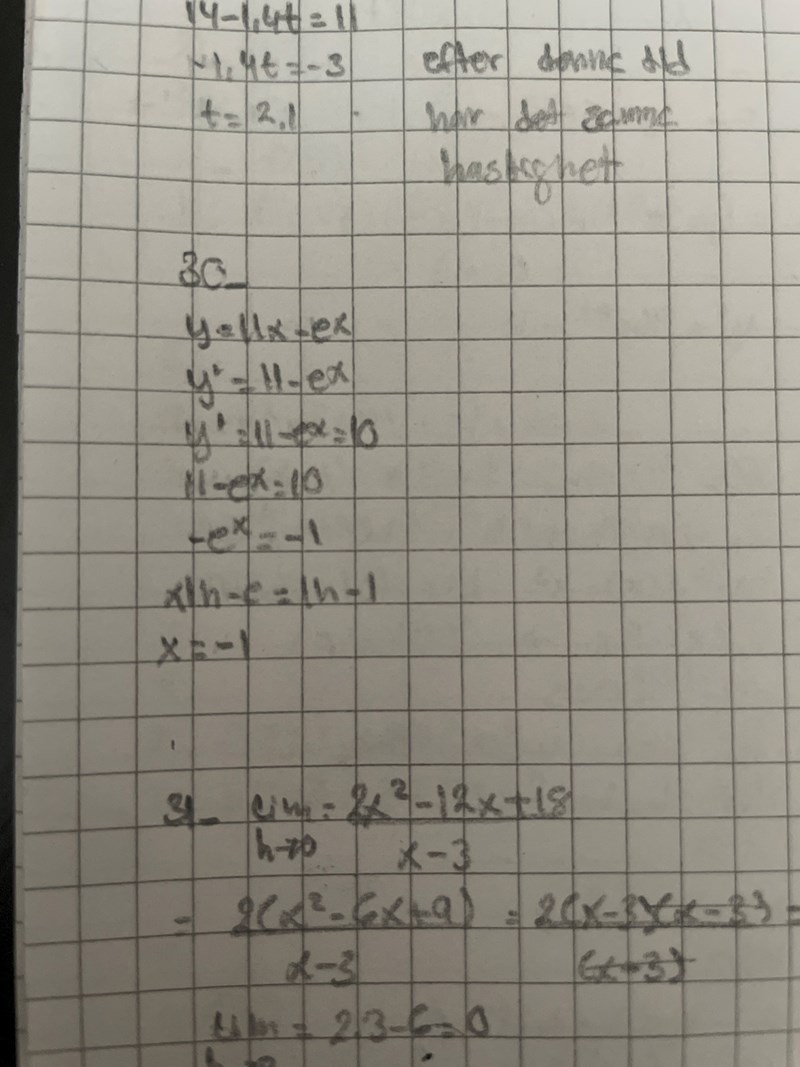 14-1,4t=11
-1,4t=-3 efter denna tid
t= 2,1 har det samma
hastighet
30_
y=11x-eˣ
y'=11-eˣ
y'=11-eˣ=10
11-eˣ=10
-eˣ=-1
x ln-e=ln-1
x=-1
31_ lim = 2x²-12x+18
h→0 x-3
= 2(x²-6x+9) = 2(x-3)(x-3) =
x-3 (x-3)
lim = 2.3-6=0